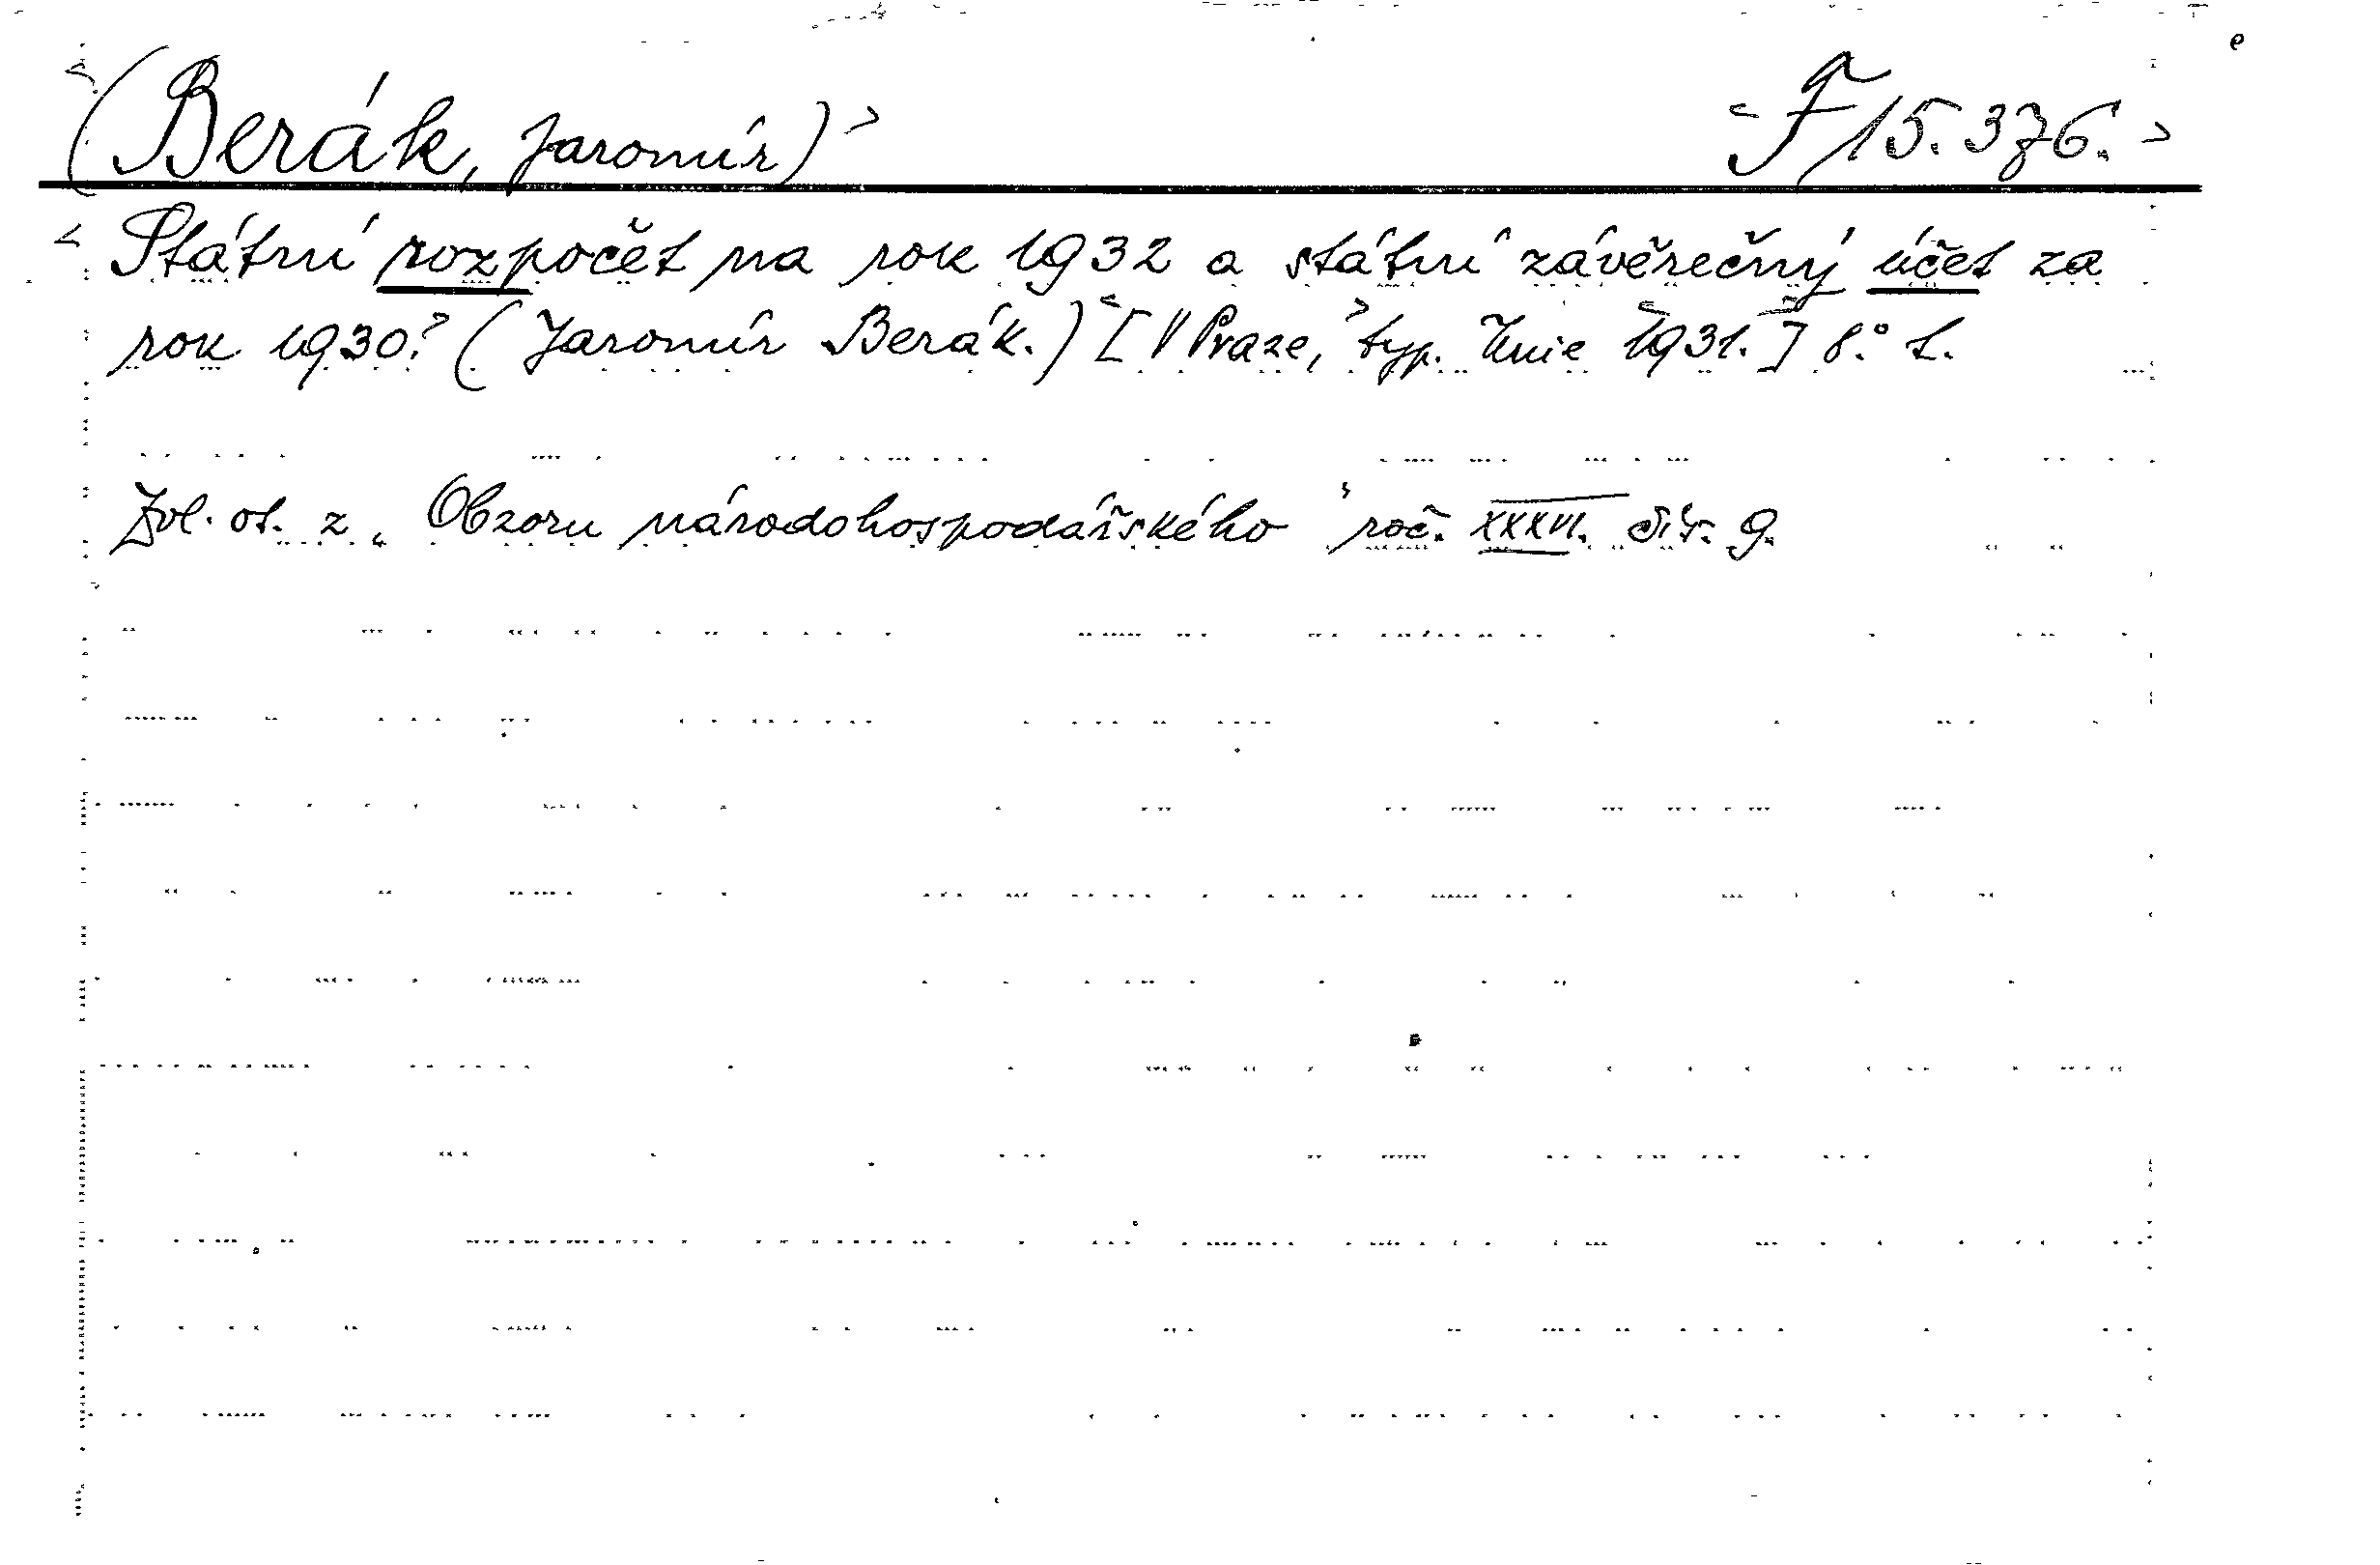 (Berák, Jaromír) F 15.376.
Státní rozpočet na rok 1932 a státní závěrečný účet za
rok 1930. (Jaromír Berák.) [V Praze, typ. Unie 1931.] 8.° L.
Zvl. ot. z „Obzoru národohospodářského" roč. XXXVI. čís. 9.